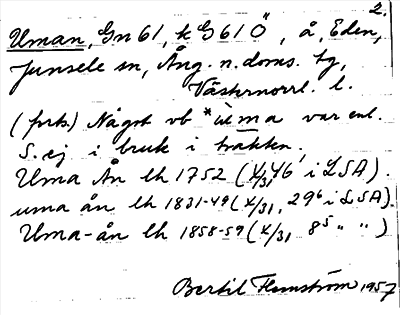 2.
Uman, Gn 61, k G 61 Ö, å, Eden,
Junsele sn, Ång. n. doms. tg,
Västernorrl. l.
(forts.) Något vb *uma var enl.
S. ej i bruk i trakten.
Uma Ån lh 1752 (X/31, 46 i LSA).
uma ån lh 1831-49 (X/31, 29⁶ i LSA).
Uma-ån lh 1858-59 (X/31 8⁵ " ")
Bertil Flemström 1957